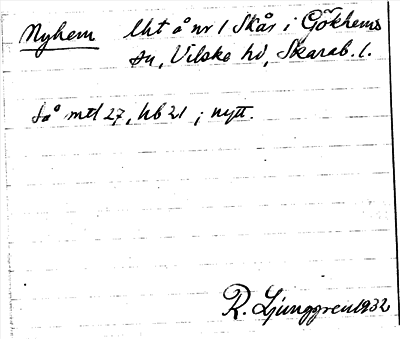 Nyhem Lht å nr 1 Skår i Gökhems
sn, Vilske hd, Skarab. l.
Så mtl 27, hb 21 ; nytt.
R. Ljunggren 1932